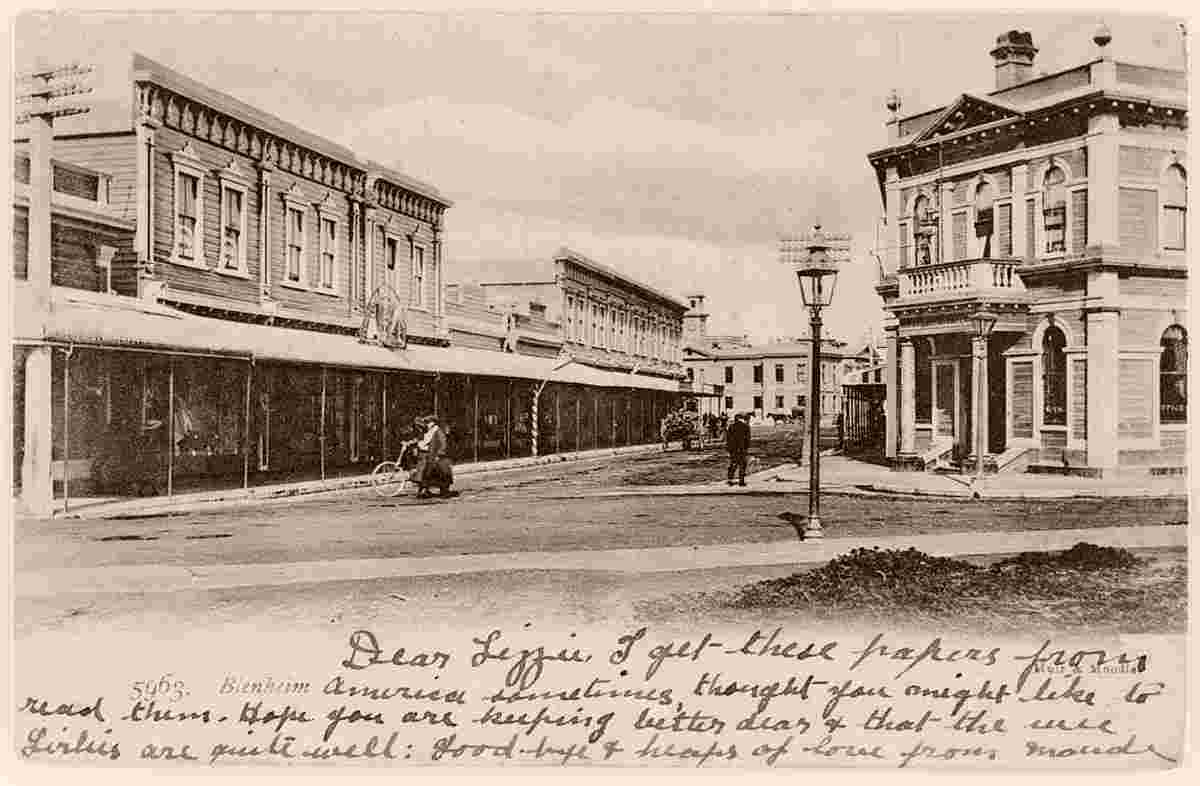 Dear Lizzie, I get these papers from
5963. Blenheim Muir & Moodie
America sometimes, thought you might like to
read them. Hope you are keeping better dear & that the wee
Girlies are quite well: Good-bye & heaps of love from Maude